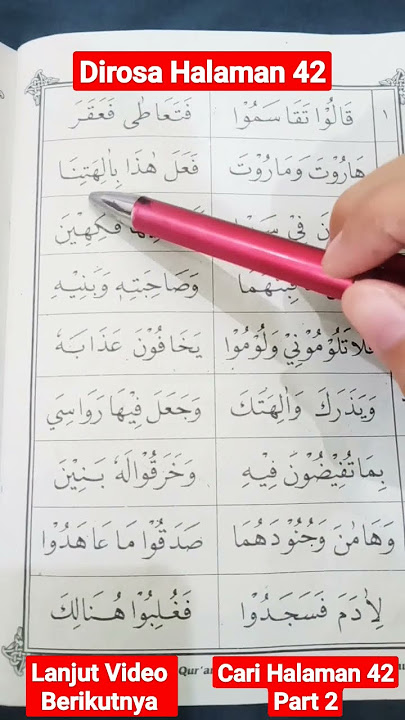 Dirosa Halaman 42
١ قَالُوْا تَقَاسَمُوْا فَتَعَاطٰى فَعَقَرَ
هَارُوْتَ وَمَارُوْتَ فَعَلَ هٰذَا بِاٰلِهَتِنَا
فِيْ فٰكِهِيْنَ
وَصَاحِبَتِهٖ وَبَنِيْهِ
فَلَا تَلُوْمُوْنِيْ وَلُوْمُوْا يَخَافُوْنَ عَذَابَهٗ
وَيَذَرَكَ وَاٰلِهَتَكَ وَجَعَلَ فِيْهَا رَوَاسِيَ
بِمَا تُفِيْضُوْنَ فِيْهِ وَخَرَقُوْا لَهٗ بَنِيْنَ
وَهَامٰنَ وَجُنُوْدَهُمَا صَدَقُوْا مَا عَاهَدُوْا
لِاٰدَمَ فَسَجَدُوْا فَغُلِبُوْا هُنَالِكَ
Lanjut Video Berikutnya
Cari Halaman 42 Part 2